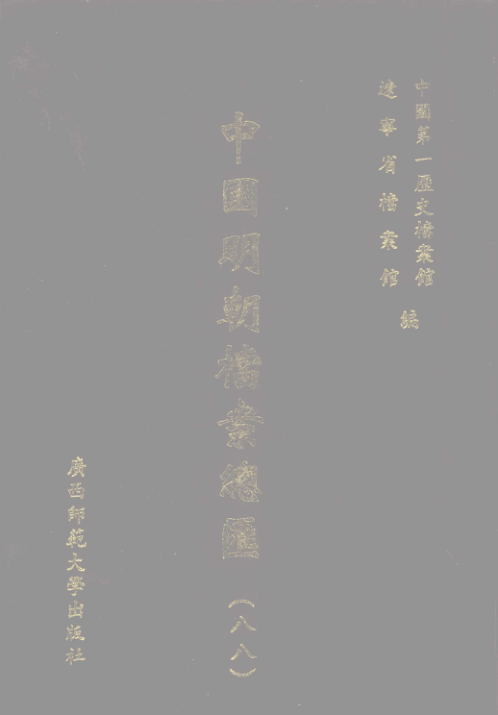 中國第一歷史檔案館
遼寧省檔案館
編
中國明朝檔案總匯
(八八)
廣西師範大學出版社